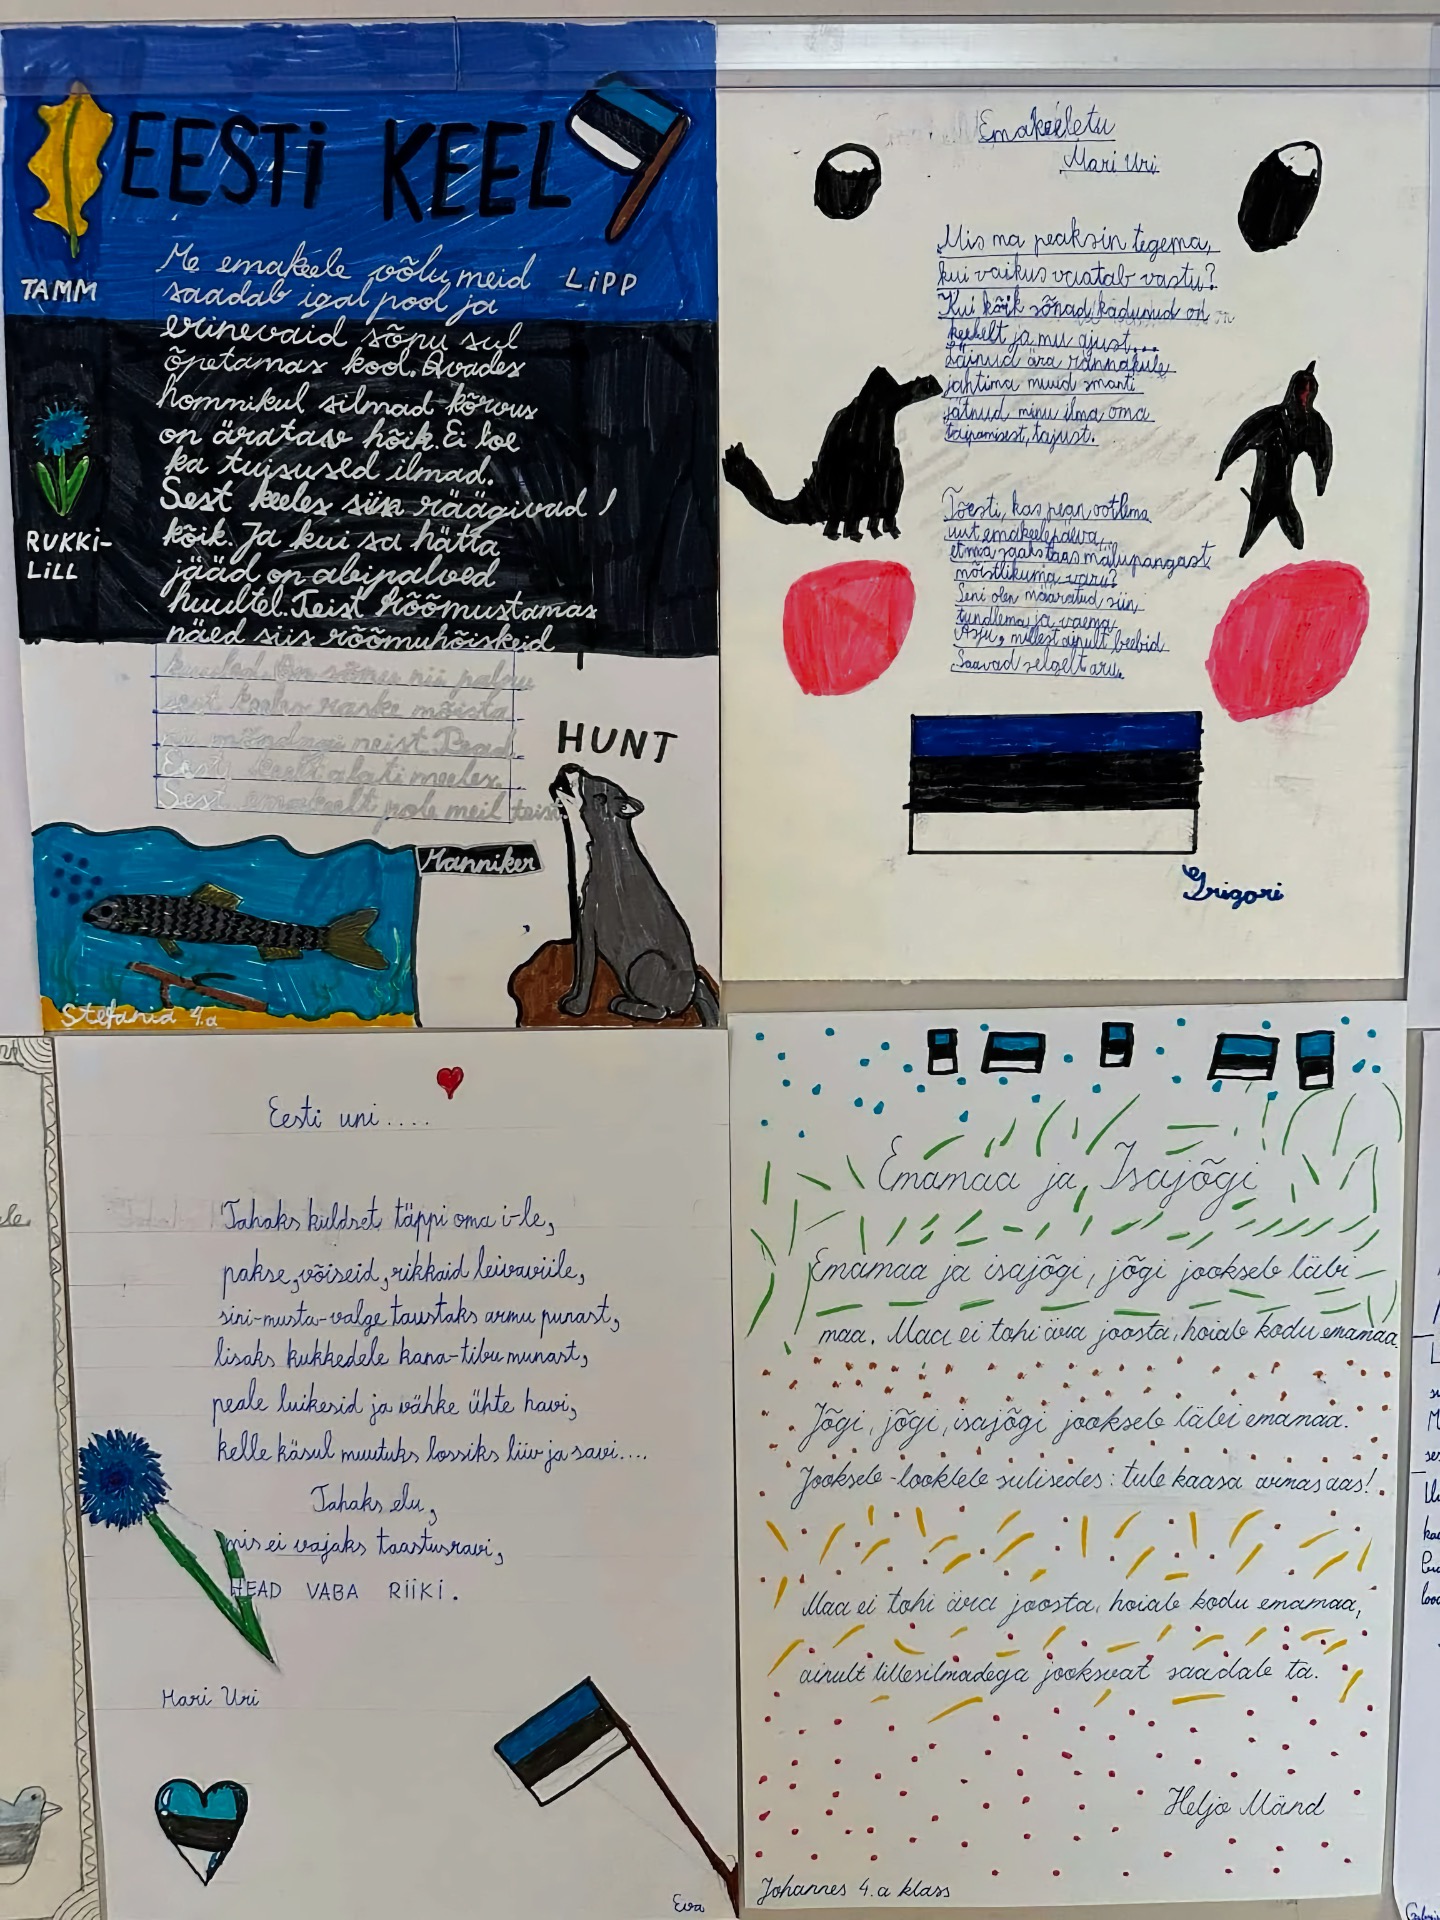 EESTi KEEL
TAMM
LiPP
Me emakeele võlu meid
saadab igal pool ja
erinevaid sõnu sul
õpetamas kool. Avades
hommikul silmad kõrvus
on äratav hõik. Ei loe
ka tuisused ilmad.
Sest keeles siin räägivad
kõik. Ja kui sa hätta
jääd on abipalved
huultel. Teist rõõmustamas
näed siis rõõmuhõiskeid
kuuled. On sõnu nii palju
sest keeles raske mõista
neist. Pead
Eesti keelt alati meeles.
Sest emakeelt pole meil teist.
RUKKi-
LiLL
HUNT
Manniker
Stefania 4.a
Emakeeletu
Mari Uri
Mis ma peaksin tegema,
kui vaikus vaatab vastu?
Kui kõik sõnad kadunud on
keelelt ja mu ajust...
Läinud ära rännakule
jahtima muid smarti
jätnud minu ilma oma
taipamisest, tajust.
Tõesti, kas pean ootlema
uut emakeelepäeva,
et ma saaks taas mälupangast
mõistlikuma varu?
Seni olen määratud siin
tundlema ja vaema
Asju, millest ainult beebid
Saavad selgelt aru.
Grigori
Eesti uni....
Tahaks kuldset täppi oma i-le,
pakse, võiseid, rikkaid leivaviile,
sini-musta-valge taustaks armu punast,
lisaks kukkedele kana-tibu munast,
peale luikesid ja vähke ühte havi,
kelle käsul muutuks lossiks liiv ja savi....
Tahaks elu,
mis ei vajaks taastusravi,
HEAD VABA RiiKi.
Mari Uri
Eva
Emamaa ja Isajõgi
Emamaa ja isajõgi, jõgi jookseb läbi
maa. Maa ei tohi ära joosta, hoiab kodu emamaa.
Jõgi, jõgi, isajõgi jookseb läbi emamaa.
Jookseb-lookleb sulisedes: tule kaasa armas aas!
Maa ei tohi ära joosta, hoiab kodu emamaa,
ainult lillesilmadega jooksvat saadab ta.
Heljo Mänd
Johannes 4.a klass